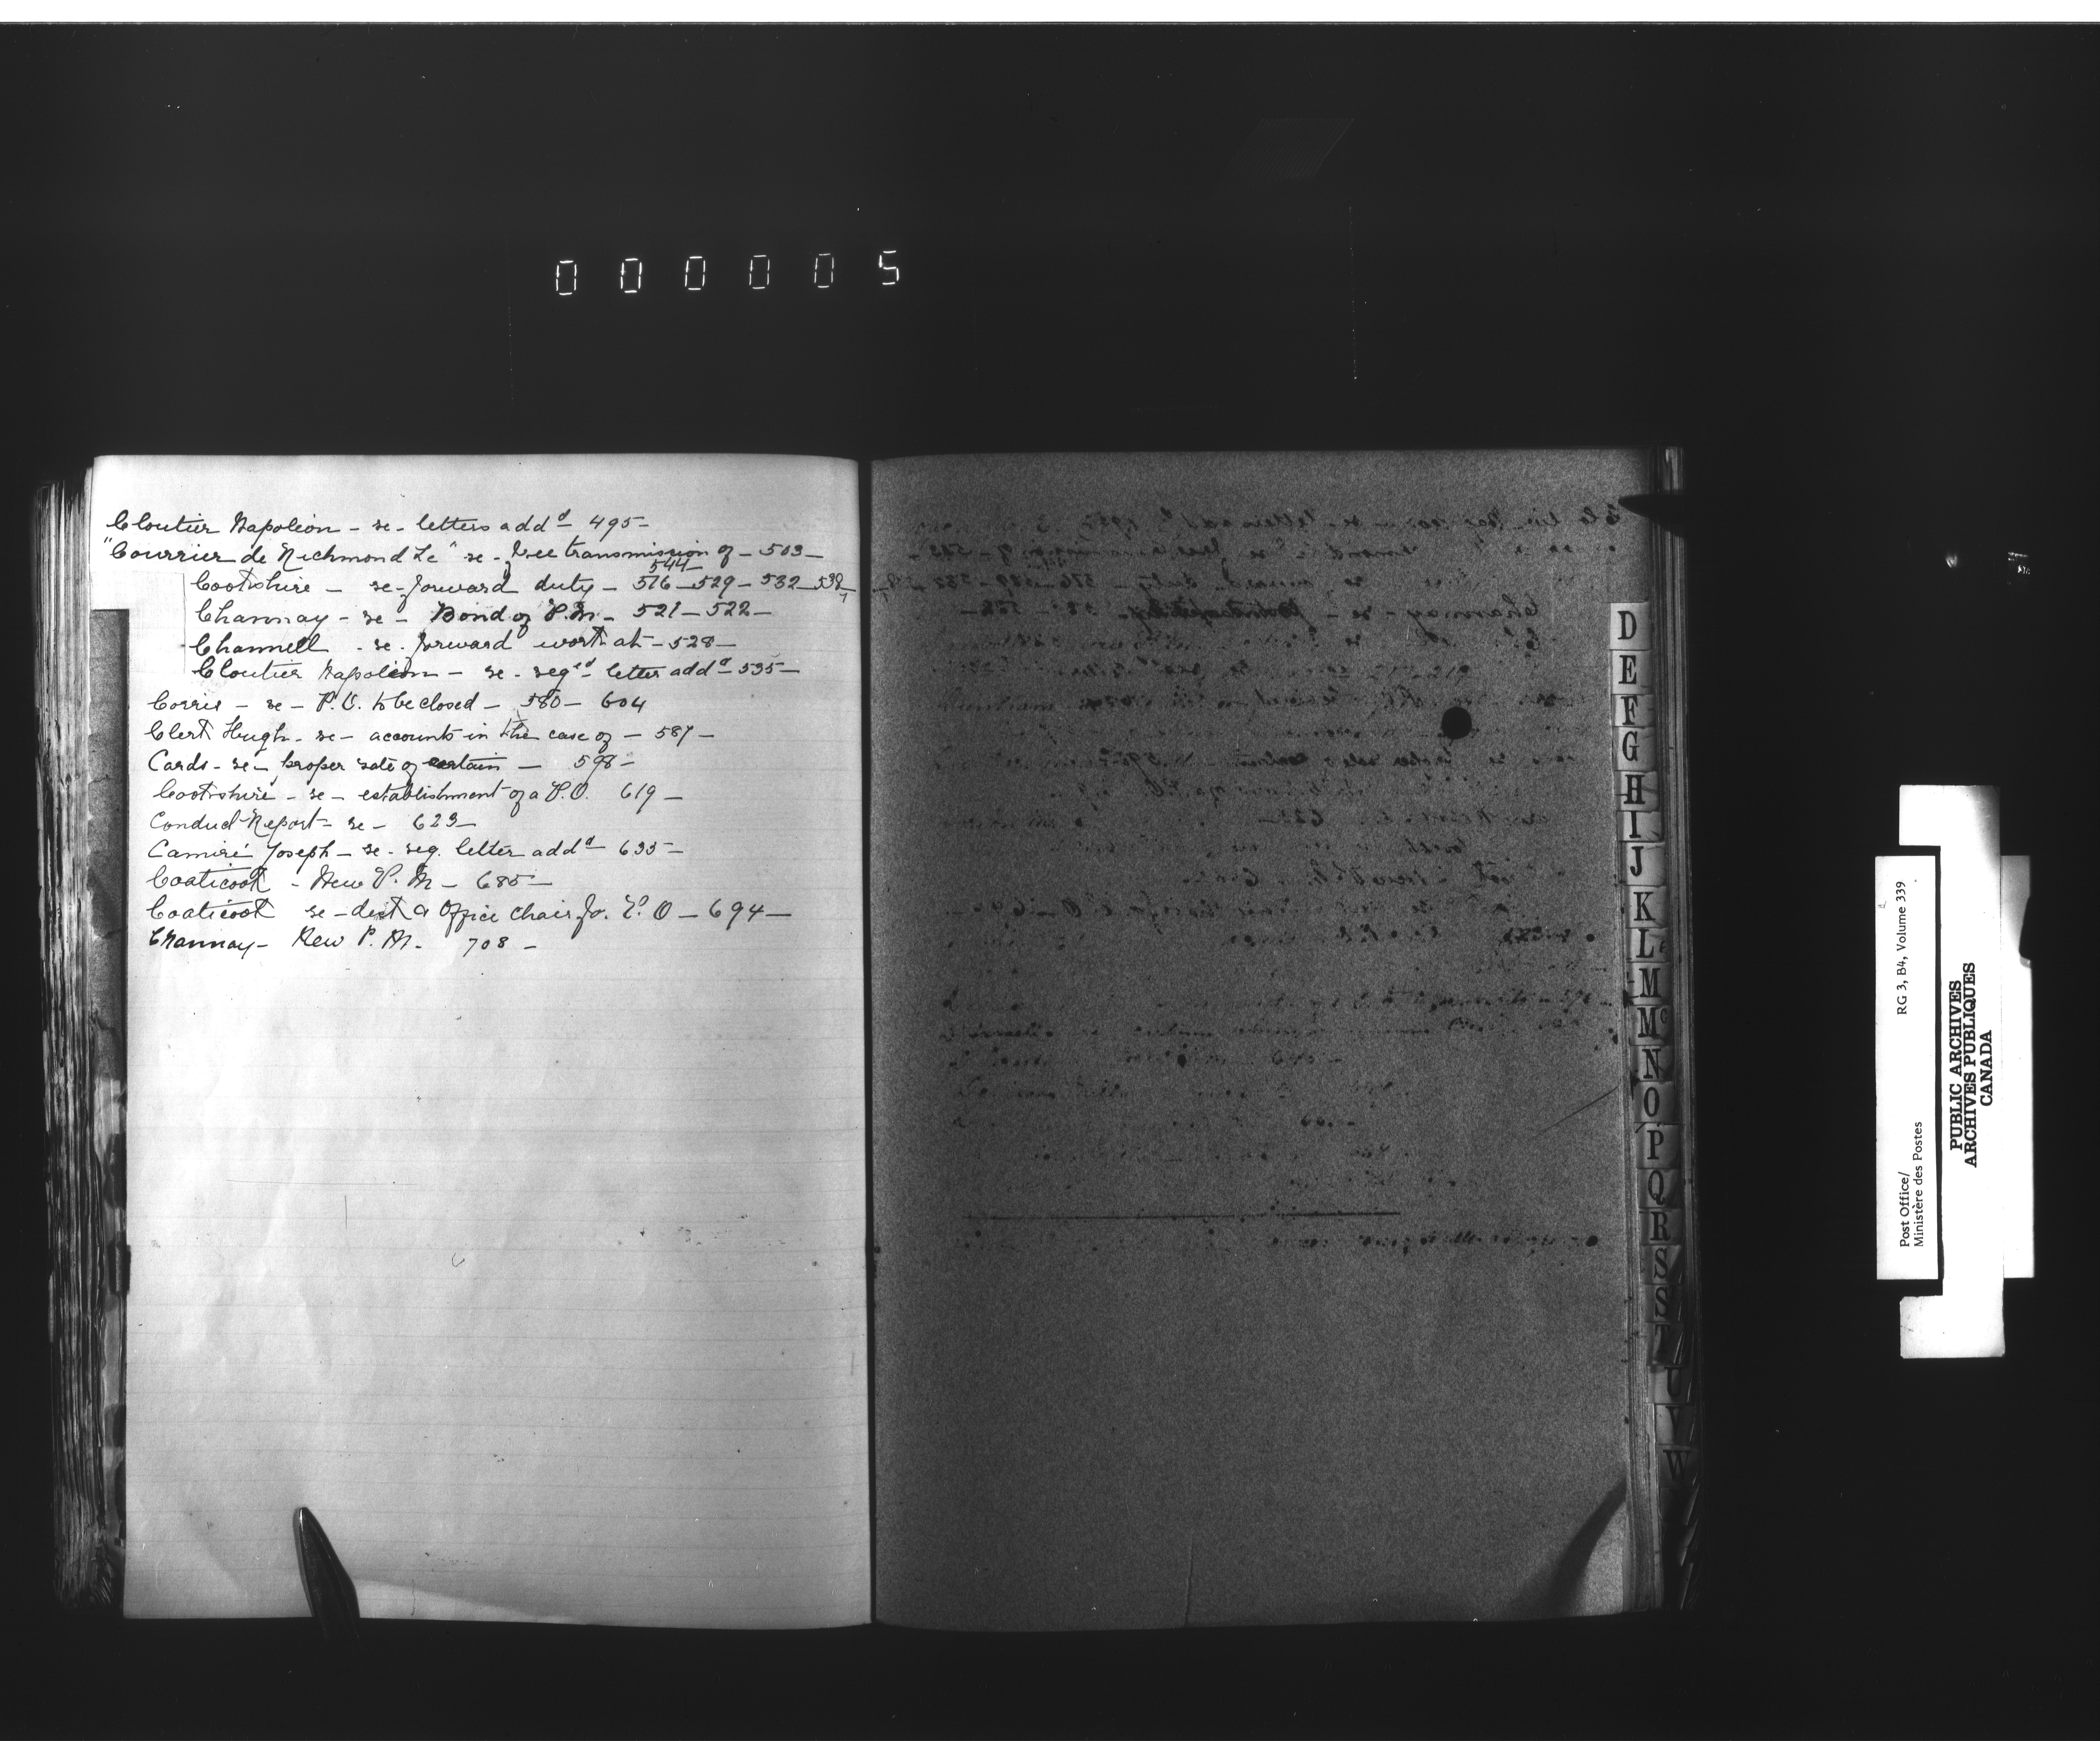 000005
Cloutier Napoléon - re - letters add^d - 495 -
"Courrier de Richmond Le" re - free transmission of - 503 -
544 -
Cookshire - re - forward duty - 516 - 529 - 532 - 538 -
Charnay - re - Bond of P.M. - 521 - 522 -
Channell - re - forward work at - 528 -
Cloutier Napoléon - re - reg^ed letter add^d - 535 -
Corris - re - P.O. to be closed - 580 - 604
Clert Hugh - re - accounts in the case of - 587 -
Cards - re - proper rate of certain - 598 -
Cookshire - re - establishment of a P.O. 619 -
Conduct Report - re - 623 -
Camiré Joseph - re - reg. letter add^d - 635 -
Coaticook - New P.M - 685 -
Coaticook re - desk & Office Chair for P.O - 694 -
Charnay - New P.M. 708 -
D
E
F
G
H
I
J
K
L
M
Mc
N
O
P
Q
R
S
S
T
U
V
W
Post Office/
Ministère des Postes
RG 3, B4, Volume 339
PUBLIC ARCHIVES
ARCHIVES PUBLIQUES
CANADA